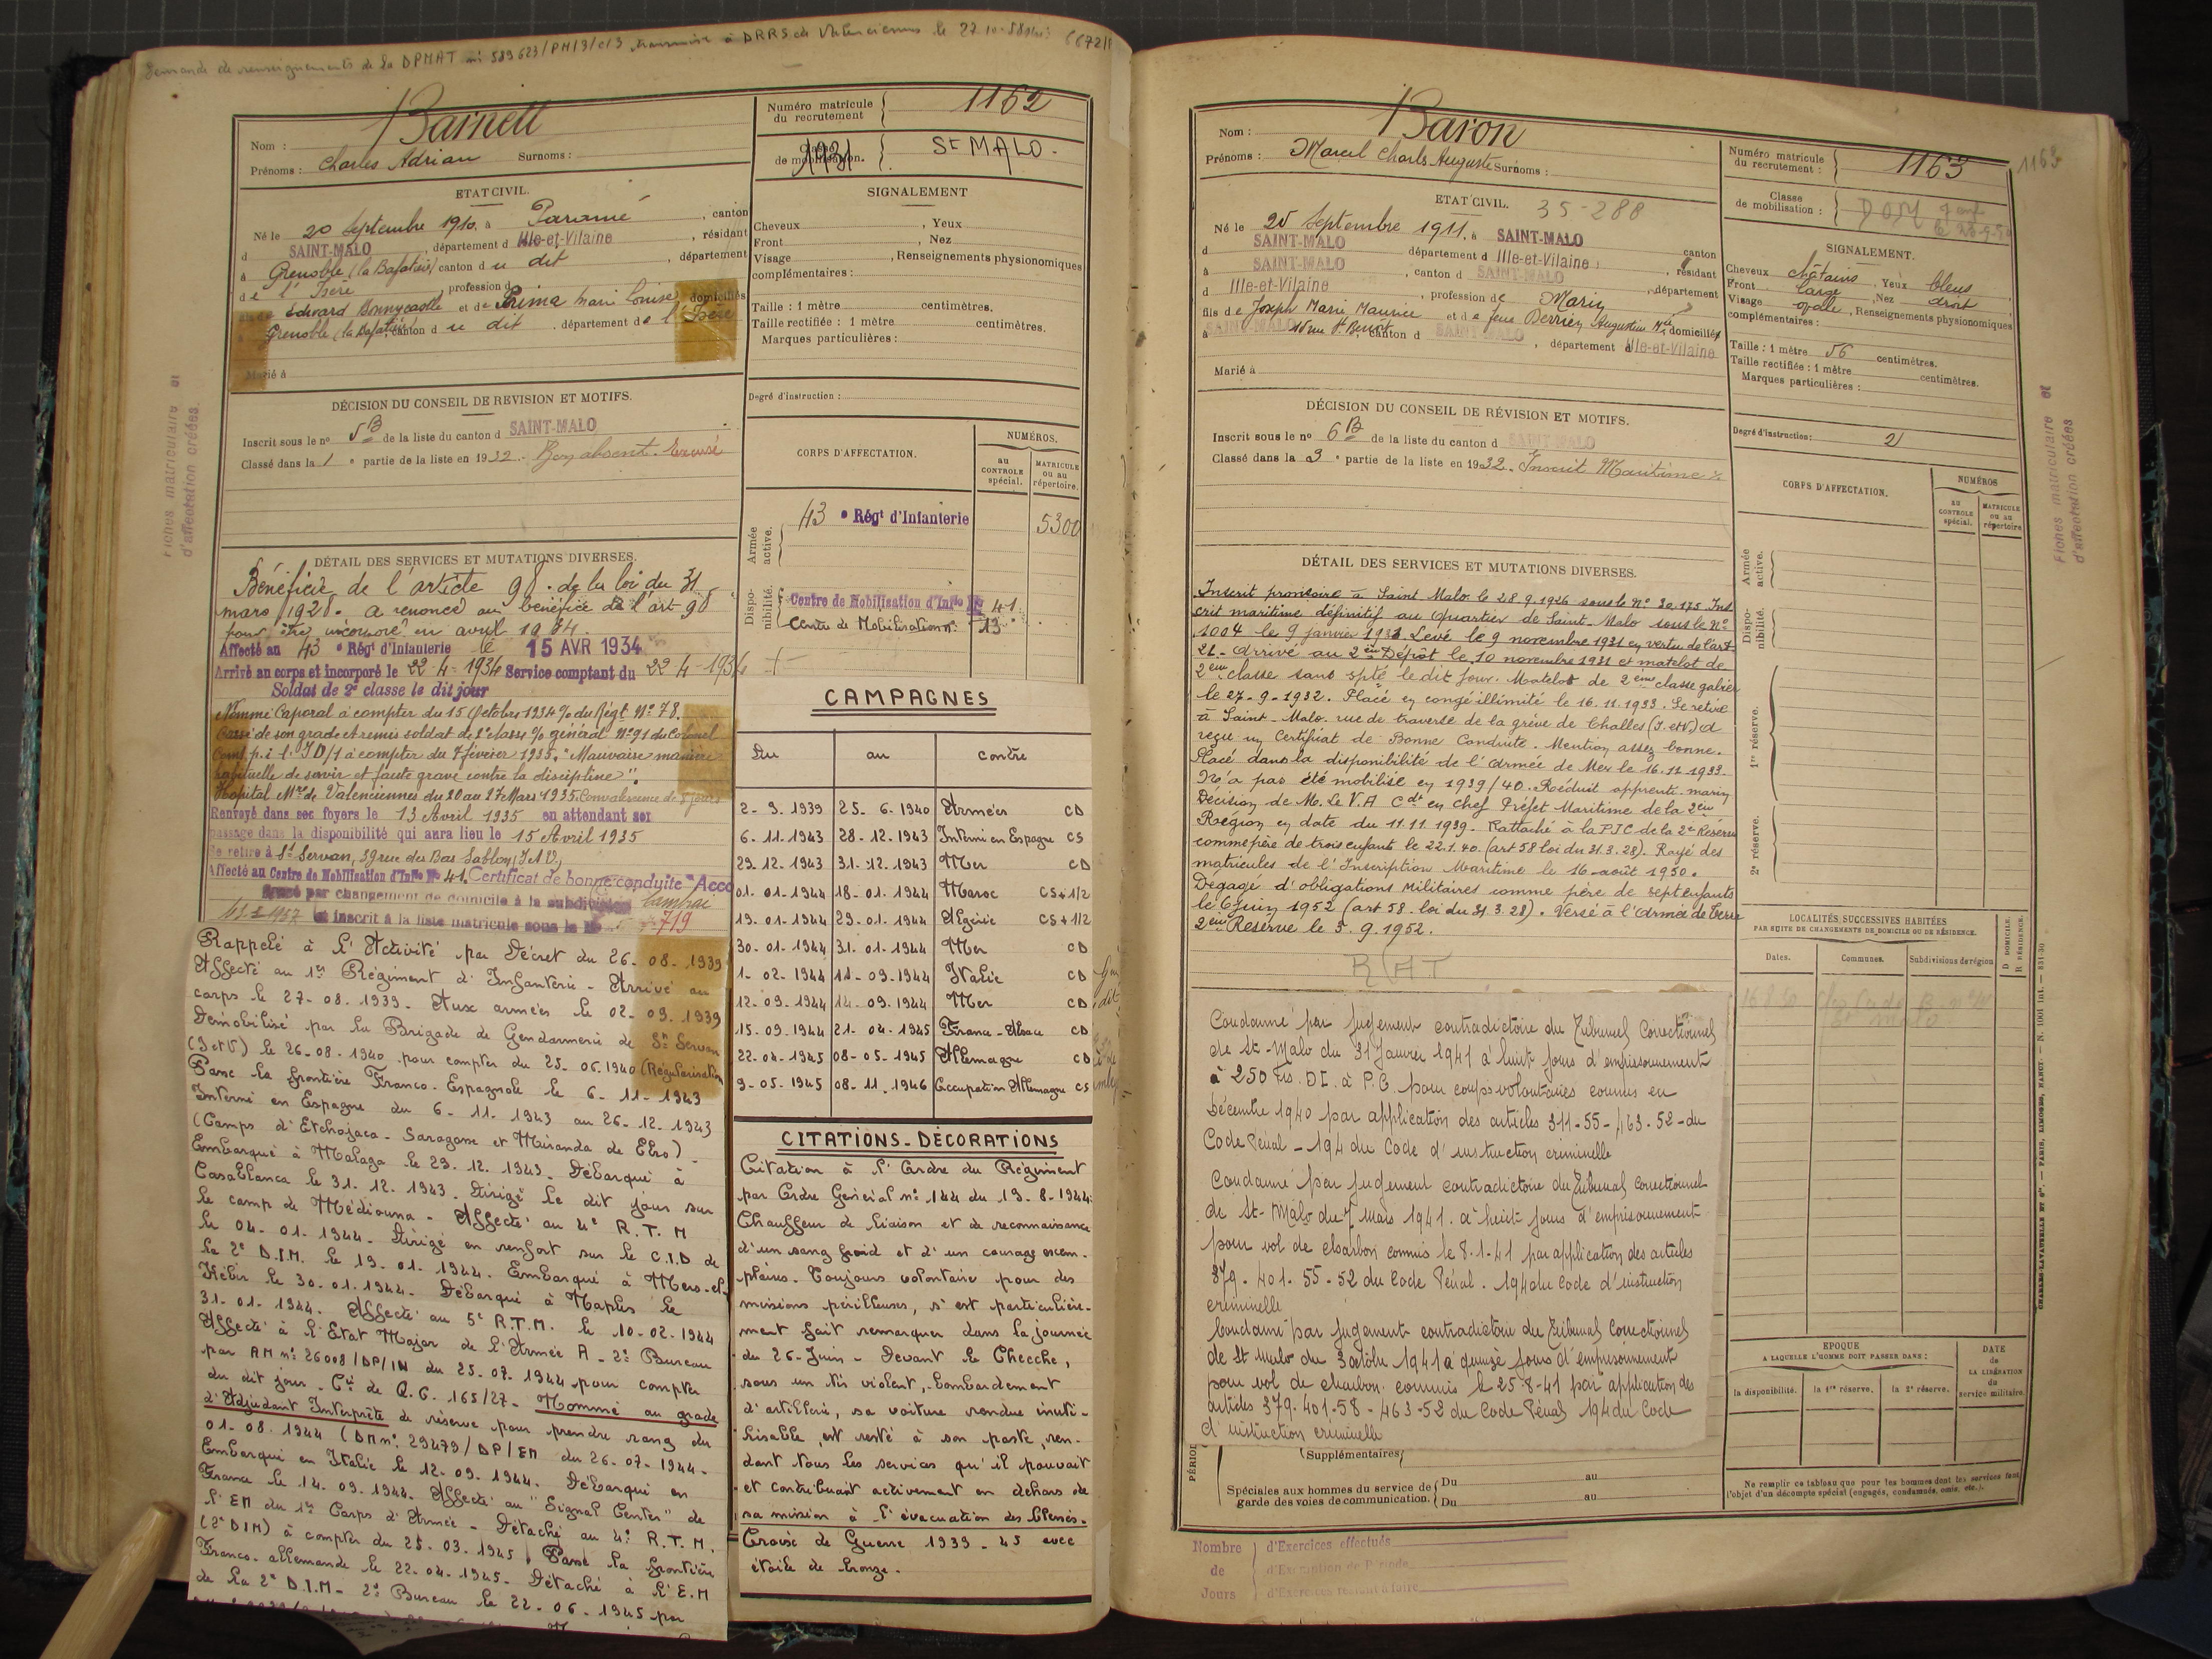 Demande de renseignements de la DPMAT n° 589623/PM/3/C/3 transmise à DRRS de Valenciennes le 27
Nom : Barnett
Prénoms : Charles Adrian Surnoms :
ETAT CIVIL.
Né le 20 Septembre 1910, à Paramé , canton
d SAINT-MALO , département d Ille-et-Vilaine , résidant
à Grenoble canton d u dit , département
d e l'Isère , profession d
Edward Bonnycastle et de Prima Marie Louise domiciliés
Grenoble canton d u dit , département de l'Isère
Marié à
DÉCISION DU CONSEIL DE REVISION ET MOTIFS.
Inscrit sous le n° 5 B de la liste du canton d SAINT-MALO
Classé dans la 1 e partie de la liste en 1932. Bon absent. Excusé
DÉTAIL DES SERVICES ET MUTATIONS DIVERSES.
Bénéficie de l'article 98 de la loi du 31
mars 1928. a renoncé au bénéfice de l'art 98
pour être incorporé en avril 1934.
Affecté au 43 e Régt d'Infanterie le 15 AVR 1934
Arrivé au corps et incorporé le 22-4-1934 Service comptant du 22-4-1934
Soldat de 2e classe le dit jour
Nommé Caporal à compter du 15 Octobre 1934 % du Régt N° 78.
Cassé de son grade et remis soldat de 2e classe % général N° 91 du Colonel
Comt p.i l'ID/1 à compter du 7 février 1935. "Mauvaise manière
habituelle de servir et faute grave contre la discipline".
Hopital Mre de Valenciennes du 20 au 27 Mars 1935. Convalescence de 8 jours
Renvoyé dans ses foyers le 13 Avril 1935 en attendant son
passage dans la disponibilité qui aura lieu le 15 Avril 1935
Se retire à St Servan, 39 rue des Bas Sablons, I.&V.
Affecté au Centre de Mobilisation d'Infie N° 41. Certificat de bonne conduite "Acco
par changement de domicile à la subdivision Cambrai
et inscrit à la liste matricule sous le N° 719
Rappelé à l'Activité par Décret du 26-08-1939
Affecté au 1er Régiment d'Infanterie - Arrivé au
corps le 27-08-1939 - Aux armées le 02-09-1939
Démobilisé par la Brigade de Gendarmerie de St Servan
(I et V) le 26-08-1940 pour compter du 25-06-1940 (Régularisation
Passe la frontière Franco-Espagnole le 6-11-1943
Interné en Espagne du 6-11-1943 au 26-12-1943
(Camps d'Etchojaca - Saragosse et Miranda de Ebro) -
Embarqué à Malaga le 29.12.1943 - Débarqué à
Casablanca le 31.12.1943. Dirigé le dit jour sur
le camp de Médiouna - Affecté au 4e R.T.M
le 04-01-1944. Dirigé en renfort sur le C.I.D de
la 2e D.I.M. le 19-01-1944. Embarqué à Mers-el-
Kébir le 30.01.1944. Débarqué à Naples le
31-01-1944. Affecté au 5e R.T.M. le 10-02-1944
Affecté à l'Etat Major de l'Armée A - 2e Bureau
par AM n° 26008/DP/IN du 25.07.1944 pour compter
du dit jour - Cie de Q.G. 165/27 - Nommé au grade
d'Adjudant Interprète de réserve pour prendre rang du
01-08-1944 (DM n° 29479/DP/EM du 26-07-1944 -
Embarqué en Italie le 12.09.1944. Débarqué en
France le 14.09.1944. Affecté au "Signal Center" de
l'EM du 1er Corps d'Armée - Détaché au 4e R.T.M.
(2e DIM) à compter du 25.03.1945. Passe la frontière
Franco-allemande le 22-04-1945. Détaché à l'E.M
de la 2e D.I.M - 2e Bureau le 22-06-1945 par
Fiches matriculaire et
d'affectation créées.
Numéro matricule du recrutement 1162
Classe de mobilisation. 1931 St MALO -
SIGNALEMENT
Cheveux , Yeux
Front , Nez
Visage , Renseignements physionomiques
complémentaires :
Taille : 1 mètre centimètres.
Taille rectifiée : 1 mètre centimètres.
Marques particulières :
Degré d'instruction :
CORPS D'AFFECTATION.
NUMÉROS.
AU CONTROLE spécial.
MATRICULE ou au répertoire.
Armée active.
43 e Régt d'Infanterie 5300
Disponibilité.
Centre de Mobilisation d'Infie N° 41
Centre de Mobilisation n° 13
CAMPAGNES
Du au contre
2-9-1939 25-6-1940 Armées CD
6-11-1943 28-12-1943 Interné en Espagne CS
29.12.1943 31-12.1943 Mer CD
01.01.1944 18-01-1944 Maroc CS+1/2
19.01.1944 29.01.1944 Algérie CS+1/2
30-01-1944 31.01.1944 Mer CD
1-02-1944 11-09.1944 Italie CD
12-09.1944 14-09.1944 Mer CD
15-09.1944 21-04-1945 France-Alsace CD
22-04-1945 08-05-1945 Allemagne CD
9-05-1945 08-11-1946 Occupation Allemagne CS
CITATIONS - DÉCORATIONS
Citation à l'Ordre du Régiment
par Ordre Général n° 144 du 19-8-1944:
Chauffeur de liaison et de reconnaissance
d'un sang froid et d'un courage exem-
plaires. Toujours volontaire pour des
missions périlleuses, s'est particulière-
ment fait remarquer dans la journée
du 26-Juin - Devant le Checche,
sous un tir violent, bombardement
d'artillerie, sa voiture rendue inuti-
lisable, est resté à son poste, ren-
dant tous les services qu'il pouvait
et contribuant activement en dehors de
sa mission à l'évacuation des blessés.
Croix de Guerre 1939-45 avec
étoile de bronze.
Nom : Baron
Prénoms : Marcel Charles Auguste Surnoms :
ETAT CIVIL. 35-288
Né le 20 Septembre 1911, à SAINT-MALO
d SAINT-MALO département d Ille-et-Vilaine canton
à SAINT-MALO , canton d SAINT-MALO , résidant
d Ille-et-Vilaine , profession de Marin , département
fils de Joseph Marie Maurice et de feue Derrien Augustine Mie, domiciliés
à SAINT-MALO rue St Benoit, canton d SAINT-MALO , département d Ille-et-Vilaine
Marié à
DÉCISION DU CONSEIL DE RÉVISION ET MOTIFS.
Inscrit sous le n° 6 B de la liste du canton d SAINT-MALO
Classé dans la 3 e partie de la liste en 1932. Inscrit Maritime
DÉTAIL DES SERVICES ET MUTATIONS DIVERSES.
Inscrit provisoire à Saint Malo le 28.9.1926 sous le N° 30.175 Ins-
crit maritime définitif au quartier de Saint-Malo sous le N°
1004 le 9 janvier 1931 Levé le 9 novembre 1931 en vertu de l'art
21 - Arrivé au 2ème Dépôt le 10 novembre 1931 et matelot de
2ème classe sans spté le dit jour. Matelot de 2ème classe gabier
le 27-9-1932. Placé en congé illimité le 16.11.1933. Se retire
à Saint-Malo. rue de traverse de la grève de Challes (I.etV) a
reçu un Certificat de Bonne Conduite. Mention assez bonne.
Placé dans la disponibilité de l'Armée de Mer le 16.11.1933.
N'a pas été mobilisé en 1939/40. Réduit apprenti-marin
Décision de M. Le V.A Cdt en Chef Préfet Maritime de la 2ème
Région en date du 11.11.1939. Rattaché à la PJC de la 2e Réserve
comme père de trois enfants le 22.1.40. (art 58 loi du 31.3.28). Rayé des
matricules de l'Inscription Maritime le 16 août 1950.
Dégagé d'obligations militaires comme père de sept enfants
le 6 Juin 1952 (art 58. loi du 31.3.28). Versé à l'Armée de Terre
2ème Réserve le 5.9.1952.
RAT
Condamné par jugement contradictoire du Tribunal Correctionnel
de St-Malo du 31 Janvier 1941 à huit jours d'emprisonnement
à 250 frs. DI. à P.C. pour coups volontaires commis en
Décembre 1940 par application des articles 311-55-463-52-du
Code Pénal - 194 du Code d'instruction criminelle
Condamné par jugement contradictoire du Tribunal Correctionnel
de St-Malo du 7 Mars 1941. à huit jours d'emprisonnement
pour vol de charbon commis le 8-1-41 par application des articles
379-401-55-52 du Code Pénal. 194 du Code d'instruction
criminelle
Condamné par jugement contradictoire du Tribunal Correctionnel
de St Malo du 3 octobre 1941 à quinze jours d'emprisonnement
pour vol de charbon commis le 25-8-41 par application des
articles 379-401-58-463-52 du Code Pénal 194 du Code
d'instruction criminelle
PÉRIOD
Supplémentaires
Spéciales aux hommes du service de garde des voies de communication.
Du au
Du au
Nombre de Jours
d'Exercices effectués
d'Exemption de Période
d'Exercices restant à faire
Numéro matricule du recrutement : 1163
1163
Classe de mobilisation : DOM
SIGNALEMENT.
Cheveux châtains , Yeux bleus
Front large , Nez droit
Visage ovale , Renseignements physionomiques
complémentaires :
Taille : 1 mètre 56 centimètres.
Taille rectifiée : 1 mètre centimètres.
Marques particulières :
Degré d'instruction : 2
CORPS D'AFFECTATION.
NUMÉROS
AU CONTROLE spécial.
MATRICULE ou au répertoire
Armée active.
Disponibilité.
1re réserve.
2e réserve.
LOCALITÉS SUCCESSIVES HABITÉES
PAR SUITE DE CHANGEMENTS DE DOMICILE OU DE RÉSIDENCE.
D DOMICILE.
R RÉSIDENCE.
Dates. Communes. Subdivisions de région
EPOQUE
A LAQUELLE L'HOMME DOIT PASSER DANS :
la disponibilité. la 1re réserve. la 2e réserve.
DATE de LA LIBÉRATION du service militaire.
Ne remplir ce tableau que pour les hommes dont les services font
l'objet d'un décompte spécial (engagés, condamnés, omis, etc.).
CHARLES-LAVAUZELLE ET Cie. — PARIS, LIMOGES, NANCY. — N. 1001 int. — 831-30
Fiches matriculaire et
d'affectation créées